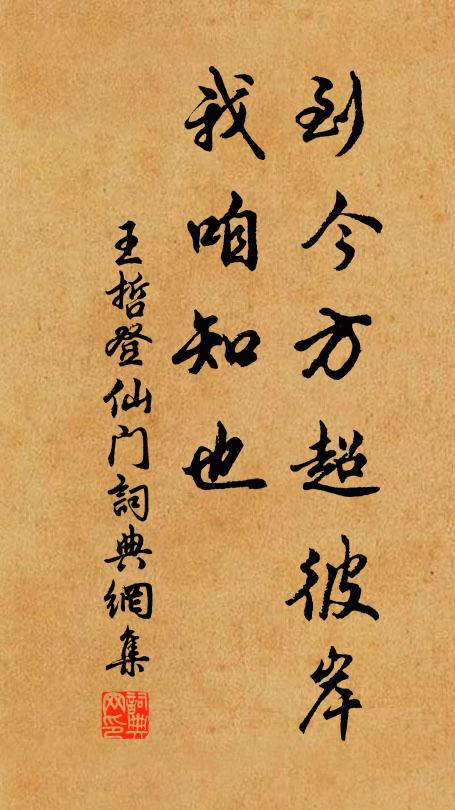 到今方超彼岸
我咱知也
王哲登仙门詞典網集
詞典網印